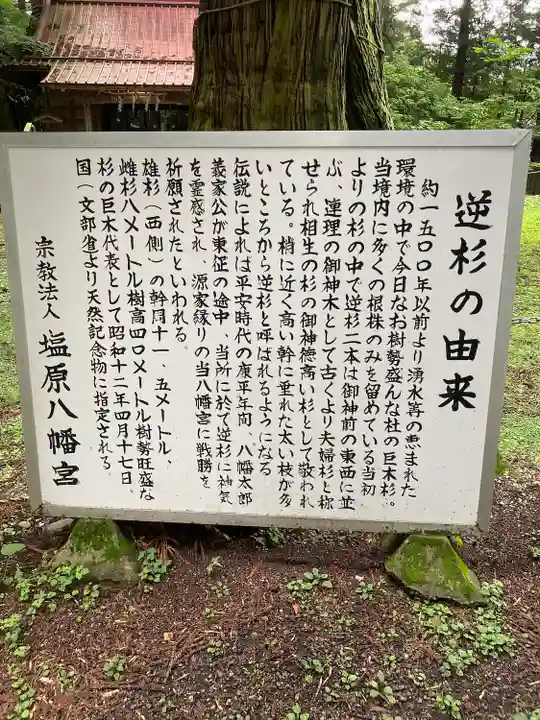 逆杉の由来
約一五〇〇年以前より湧水等の恵まれた
環境の中で今日なお樹勢盛んな社の巨木杉。
当境内に多くの根株のみを留めている当初
よりの杉の中で逆杉二本は御神前の東西に並
ぶ、連理の御神木として古くより夫婦杉と称
せられ相生の杉の御神徳高い杉として敬われ
ている。梢に近く高い幹に垂れた太い枝が多
いところから逆杉と呼ばれるようになる
伝説によれば平安時代の康平年間、八幡太郎
義家公が東征の途中、当所に於て逆杉に神気
を霊感され、源家縁りの当八幡宮に戦勝を
祈願されたといわれる。
雄杉（西側）の幹周十一、五メートル、
雌杉八メートル樹高四〇メートル樹勢旺盛な
杉の巨木代表として昭和十二年四月十七日、
国（文部省より天然記念物に指定される。
宗教法人 塩原八幡宮